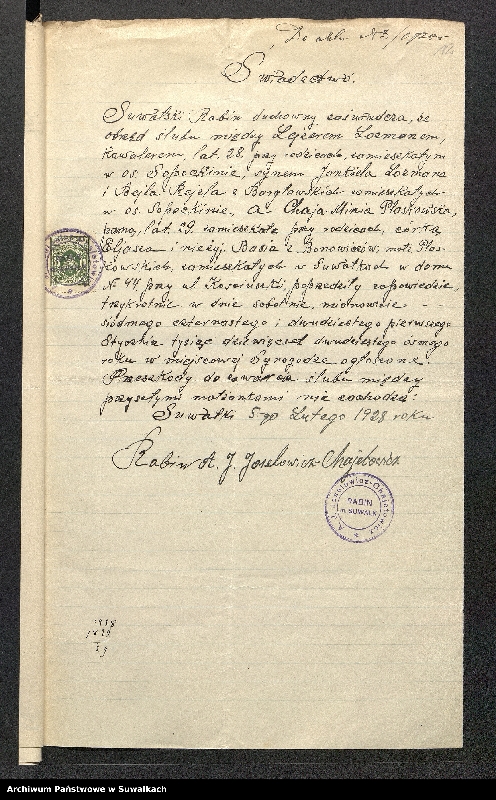 Do akt Nr 3/1928
Świadectwo.
Suwalski Rabin duchowny zaświadcza, że
obrzęd ślubu między Lejzerem Lozmanem,
kawalerem, lat 28, przy rodzicach, zamieszkałym
w os. Sopoćkinie, synem Jankiela Lozmana
i Bejla Rejzla z Borgłowskich zamieszkałych
w os. Sopoćkinie, a Chaja Minia Płaskowska,
panną, lat 29 zamieszkałą przy rodzicach, córką
Eljasza i nieżyj. Basia z Bonowiczów, małż. Płas-
kowskich, zamieszkałych w Suwałkach w domu
№ 44 przy ul Kościuszki, poprzedziły zapowiedzie,
trzykrotnie w dnie sobotnie, mianowicie -
siódmego czternastego i dwudziestego pierwszego
Stycznia tysiąc dziewięćset dwudziestego ósmego
roku w miejscowej Synagodze ogłoszone.
Przeszkody do zawarcia ślubu między
przyszłymi małżonkami nie zachodzi:
Suwałki 5-go Lutego 1928 roku
Rabin A. J. Joselowicz Chajelowicz
RABIN
m. SUWAŁK
1928
1899
Archiwum Państwowe w Suwałkach